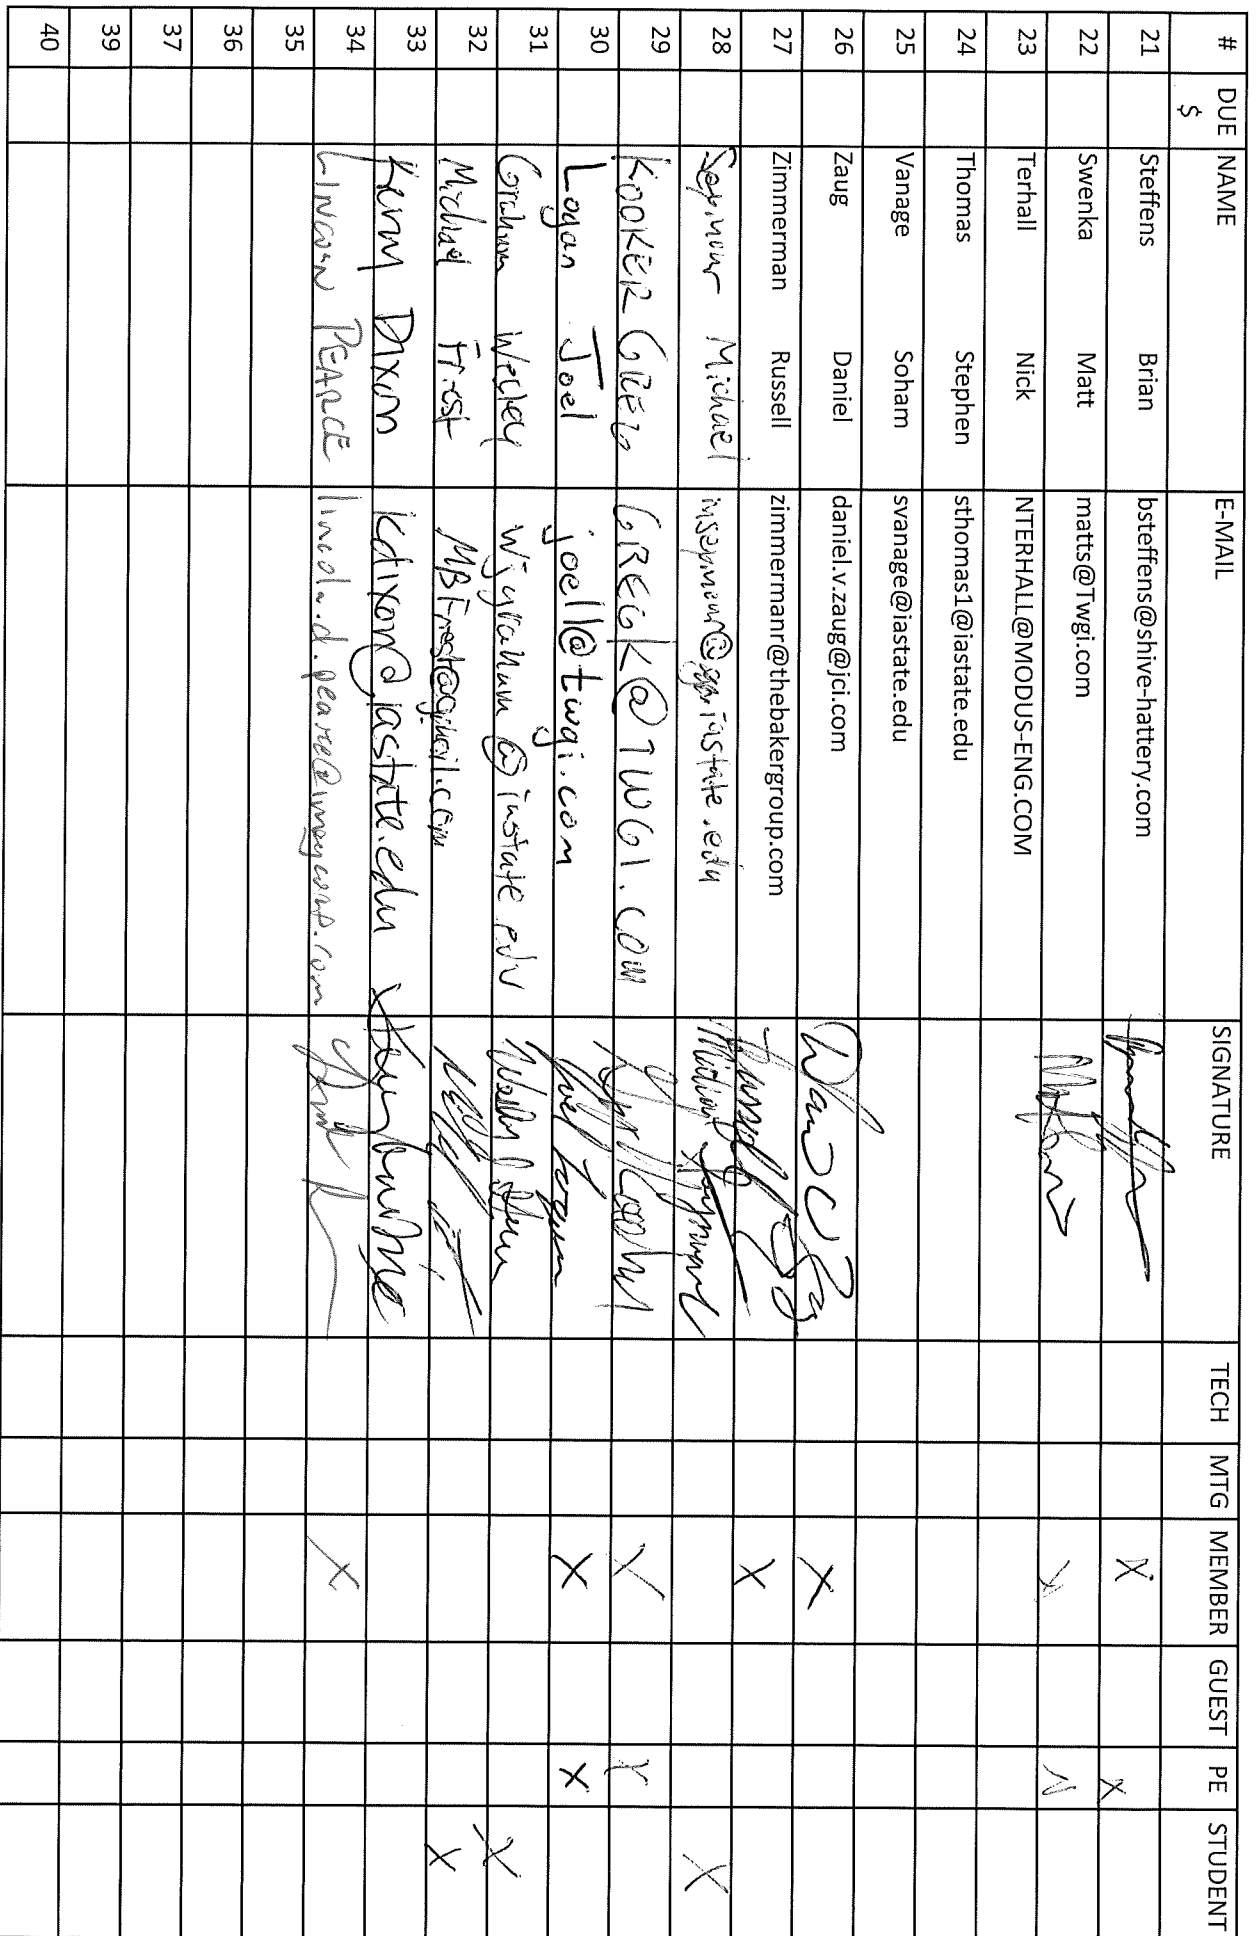 # DUE $ NAME E-MAIL SIGNATURE TECH MTG MEMBER GUEST PE STUDENT
21 Steffens Brian bsteffens@shive-hattery.com X X
22 Swenka Matt matts@Twgi.com X X
23 Terhall Nick NTERHALL@MODUS-ENG.COM
24 Thomas Stephen sthomas1@iastate.edu
25 Vanage Soham svanage@iastate.edu
26 Zaug Daniel daniel.v.zaug@jci.com X
27 Zimmerman Russell zimmermanr@thebakergroup.com X
28 Seymour Michael Michael Seymour X
29 KOOKER GREG GREGK@TWGI.COM X X
30 Logan Joel joell@twgi.com Joel Logan X X
31 Graham Wesley wjgraham@iastate.edu X
32 Michael Frost MBFrost@gmail.com X
33 Kevin Dixon kdixon@iastate.edu
34 LINCOLN PEARCE lincoln.d.pearce@imegcorp.com X
35
36
37
39
40